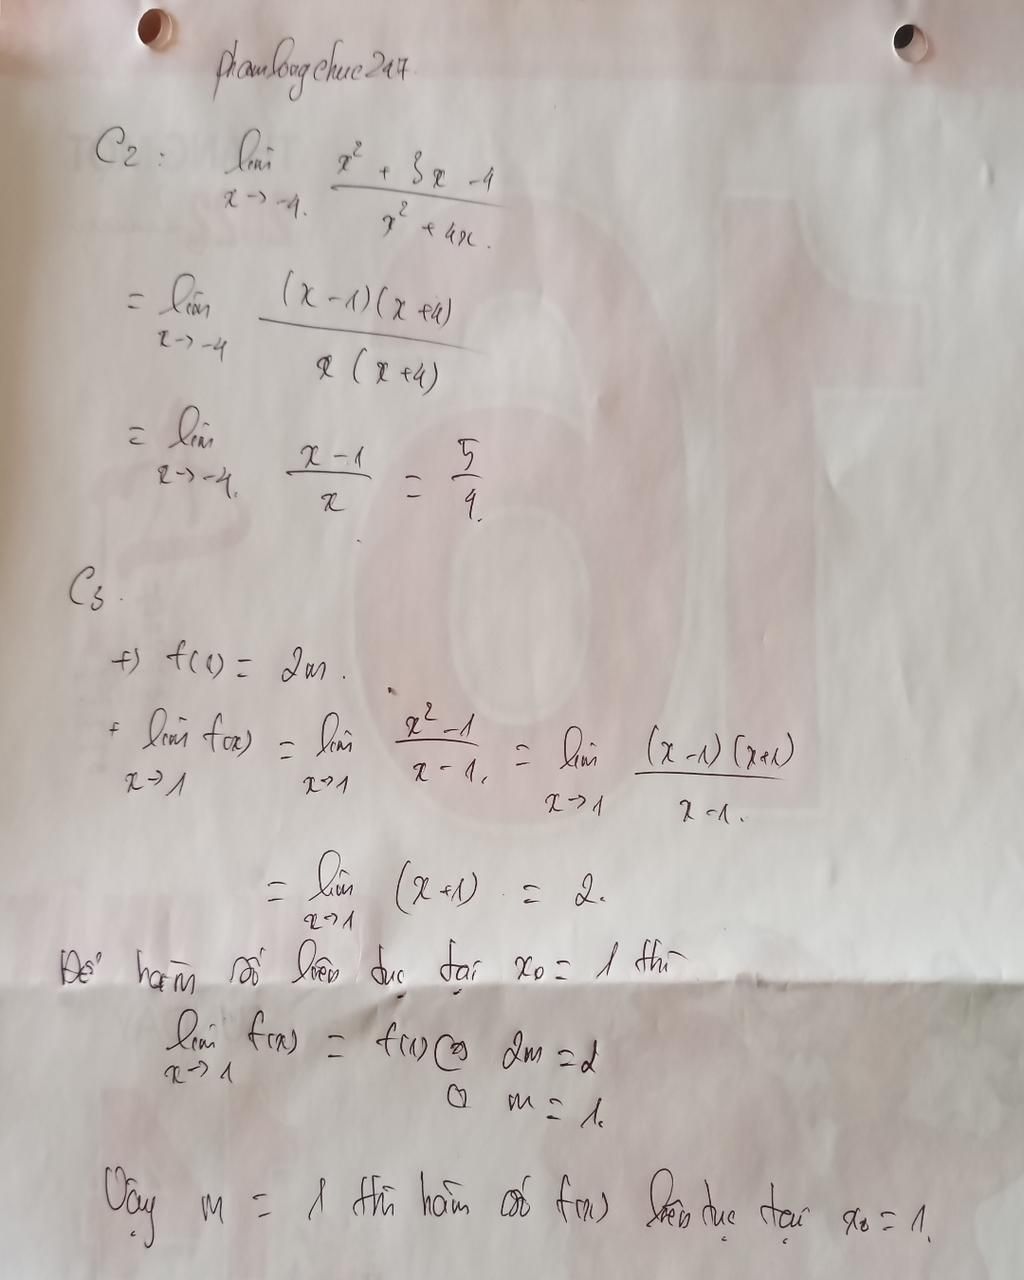 phamlongchuc247.
C2: lim x→-4. (x² + 3x - 4)/(x² + 4x.)
= lim x→-4 ((x-1)(x+4))/(x(x+4))
= lim x→-4. (x-1)/x = 5/4.
C3.
+) f(1) = 2m.
+ lim x→1 f(x) = lim x→1 (x²-1)/(x-1.) = lim x→1 ((x-1)(x+1))/(x-1.)
= lim x→1 (x+1) = 2.
Để hàm số liên tục tại x₀ = 1 thì
lim x→1 f(x) = f(1) ⇔ 2m = 2
⇔ m = 1.
Vậy m = 1 thì hàm số f(x) liên tục tại x₀ = 1.